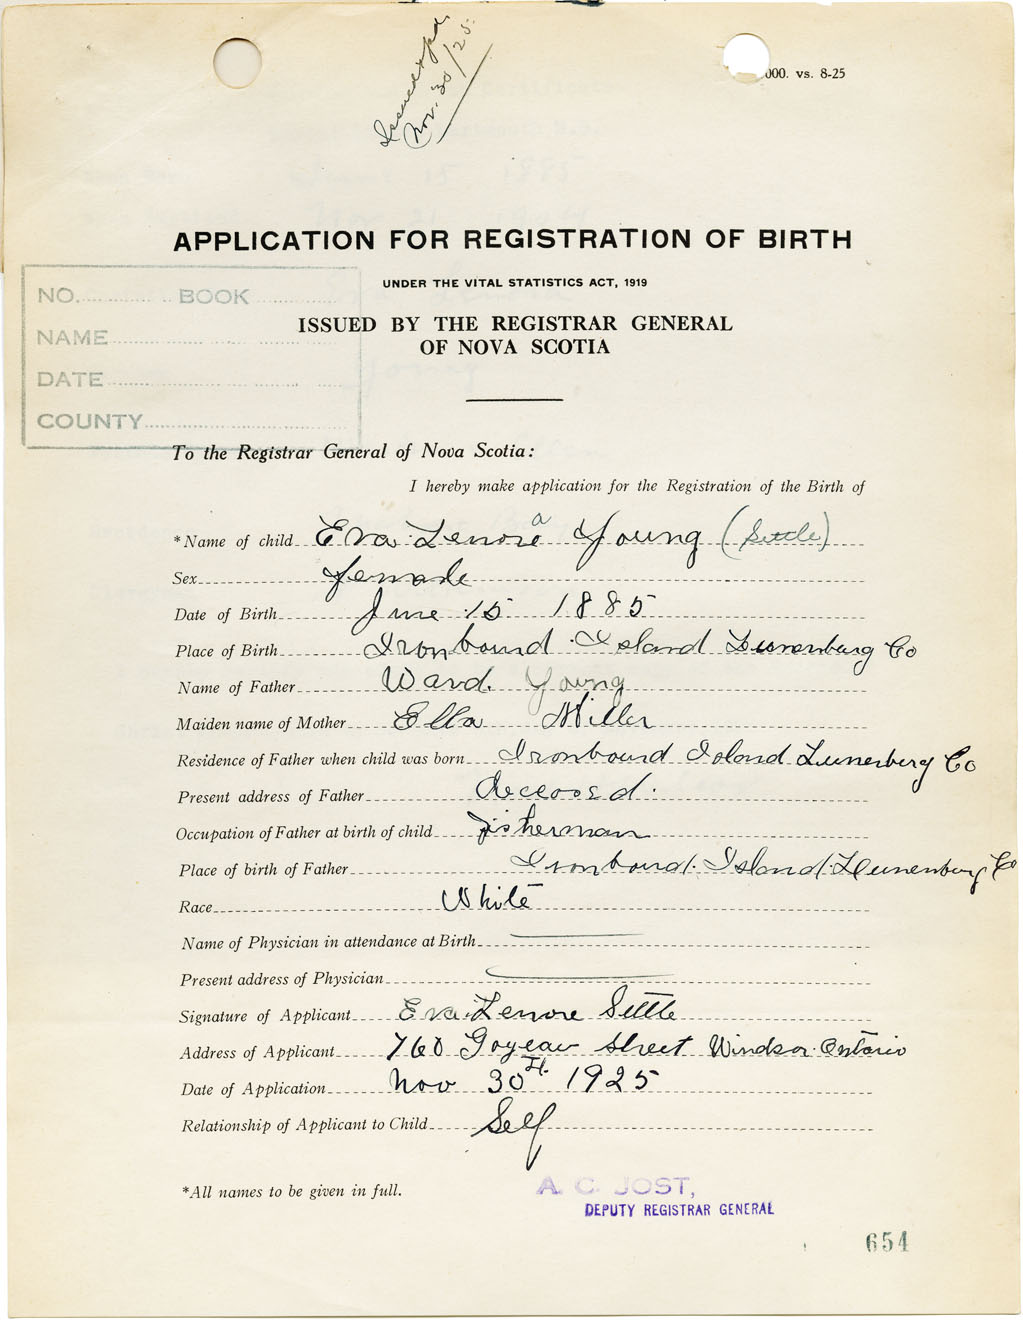 Issued & pd.
Nov. 30/25.
000. vs. 8-25
APPLICATION FOR REGISTRATION OF BIRTH
UNDER THE VITAL STATISTICS ACT, 1919
ISSUED BY THE REGISTRAR GENERAL
OF NOVA SCOTIA
NO. BOOK
NAME
DATE
COUNTY
To the Registrar General of Nova Scotia:
I hereby make application for the Registration of the Birth of
*Name of child Eva Lenore a Young (Settle)
Sex female
Date of Birth June 15 1885
Place of Birth Ironbound Island Lunenburg Co
Name of Father Ward. Young
Maiden name of Mother Ella Miller
Residence of Father when child was born Ironbound Island Lunenberg Co
Present address of Father deceased.
Occupation of Father at birth of child fisherman
Place of birth of Father Ironbound Island Lunenburg Co
Race White
Name of Physician in attendance at Birth
Present address of Physician
Signature of Applicant Eva Lenore Settle
Address of Applicant 760 Goyeau street Windsor Ontario
Date of Application Nov 30th 1925
Relationship of Applicant to Child Self
*All names to be given in full.
A. C. JOST,
DEPUTY REGISTRAR GENERAL
654